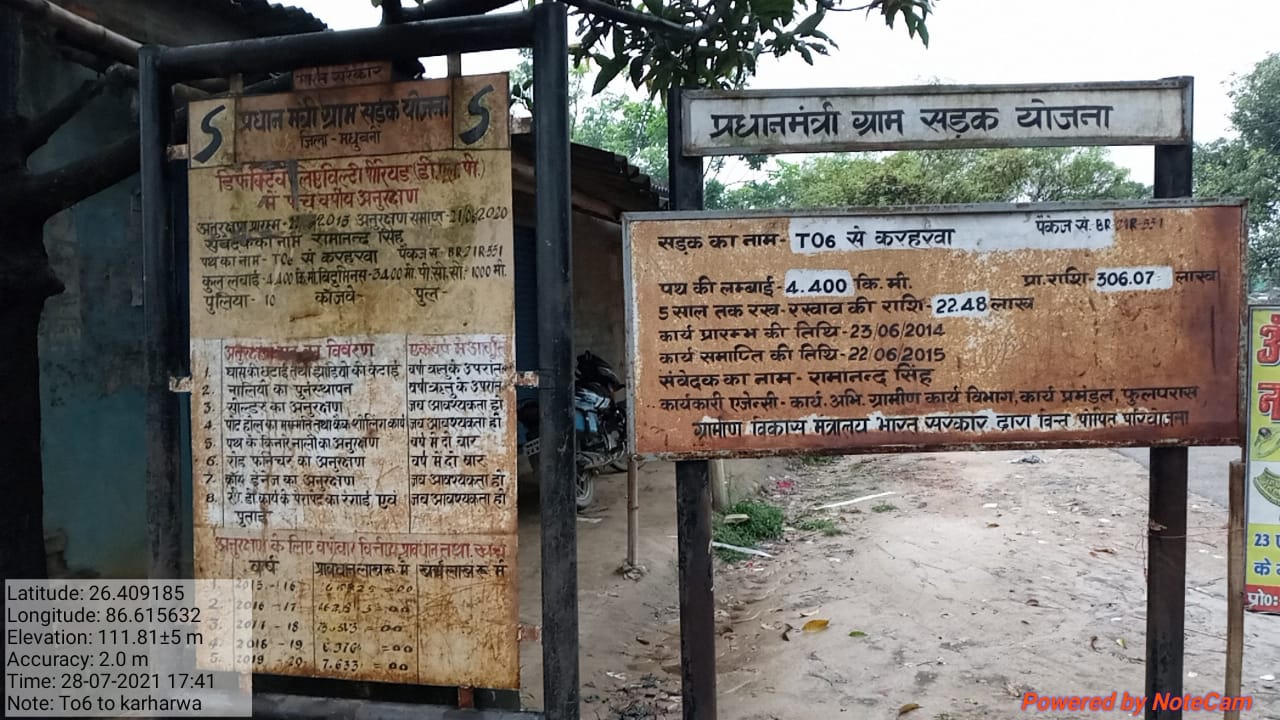 भारत सरकार
प्रधान मंत्री ग्राम सड़क योजना
जिला - मधुबनी
S S
डिफेक्टिव लाइबिल्टी पीरियड (डी.एल.पी.)
में पंच वर्षीय अनुरक्षण
अनुरक्षण प्रारम्भ - 2015 अनुरक्षण समाप्त - 21/06/2020
संवेदक का नाम रामानन्द सिंह
पथ का नाम - TO6 से करहरवा पैकेज सं. BR 21R 551
कुल लंबाई - 4.400 कि.मी. बिटुमिनस - 3400 मी. पी.सी.सी. 1000 मी.
पुलिया - 10 कॉजवे - पुल -
अनुरक्षण विवरण
1. घास की छटाई तथा झाड़ियों की कटाई वर्षा ऋतु के उपरान्त
2. नालियों का पुर्नस्थापन वर्षा ऋतु के उपरान्त
3. सोल्डर का अनुरक्षण जब आवश्यकता हो
4. जब आवश्यकता हो
5. पथ के किनारे नाली का अनुरक्षण वर्ष में दो बार
6. रोड फर्निचर का अनुरक्षण वर्ष में दो बार
7. क्रॉस ड्रेनेज का अनुरक्षण जब आवश्यकता हो
8. सी. डी. कार्य के पैरापेट का रंगाई एवं जब आवश्यकता हो
पुताई
अनुरक्षण के लिए वर्षवार वित्तीय प्रावधान तथा खर्च
वर्ष प्रावधान लाख रू में खर्च लाख रू में
1. 2015 - 16
2. 2016 - 17
3. - 18
4. 2018 - 19
5. 2019 - 20 7.633
प्रधानमंत्री ग्राम सड़क योजना
सड़क का नाम - TO6 से करहरवा पैकेज सं. BR 21R 551
पथ की लम्बाई - 4.400 कि. मी. प्रा. राशि - 306.07 लाख
5 साल तक रख - रखाव की राशि - 22.48 लाख
कार्य प्रारम्भ की तिथि - 23/06/2014
कार्य समाप्ति की तिथि - 22/06/2015
संवेदक का नाम - रामानन्द सिंह
कार्यकारी एजेन्सी - कार्य. अभि. ग्रामीण कार्य विभाग, कार्य प्रमंडल, फुलपरास
ग्रामीण विकास मंत्रालय भारत सरकार द्वारा वित्त पोषित परियोजना
23
के
प्रो०:
Latitude: 26.409185
Longitude: 86.615632
Elevation: 111.81±5 m
Accuracy: 2.0 m
Time: 28-07-2021 17:41
Note: To6 to karharwa
Powered by NoteCam